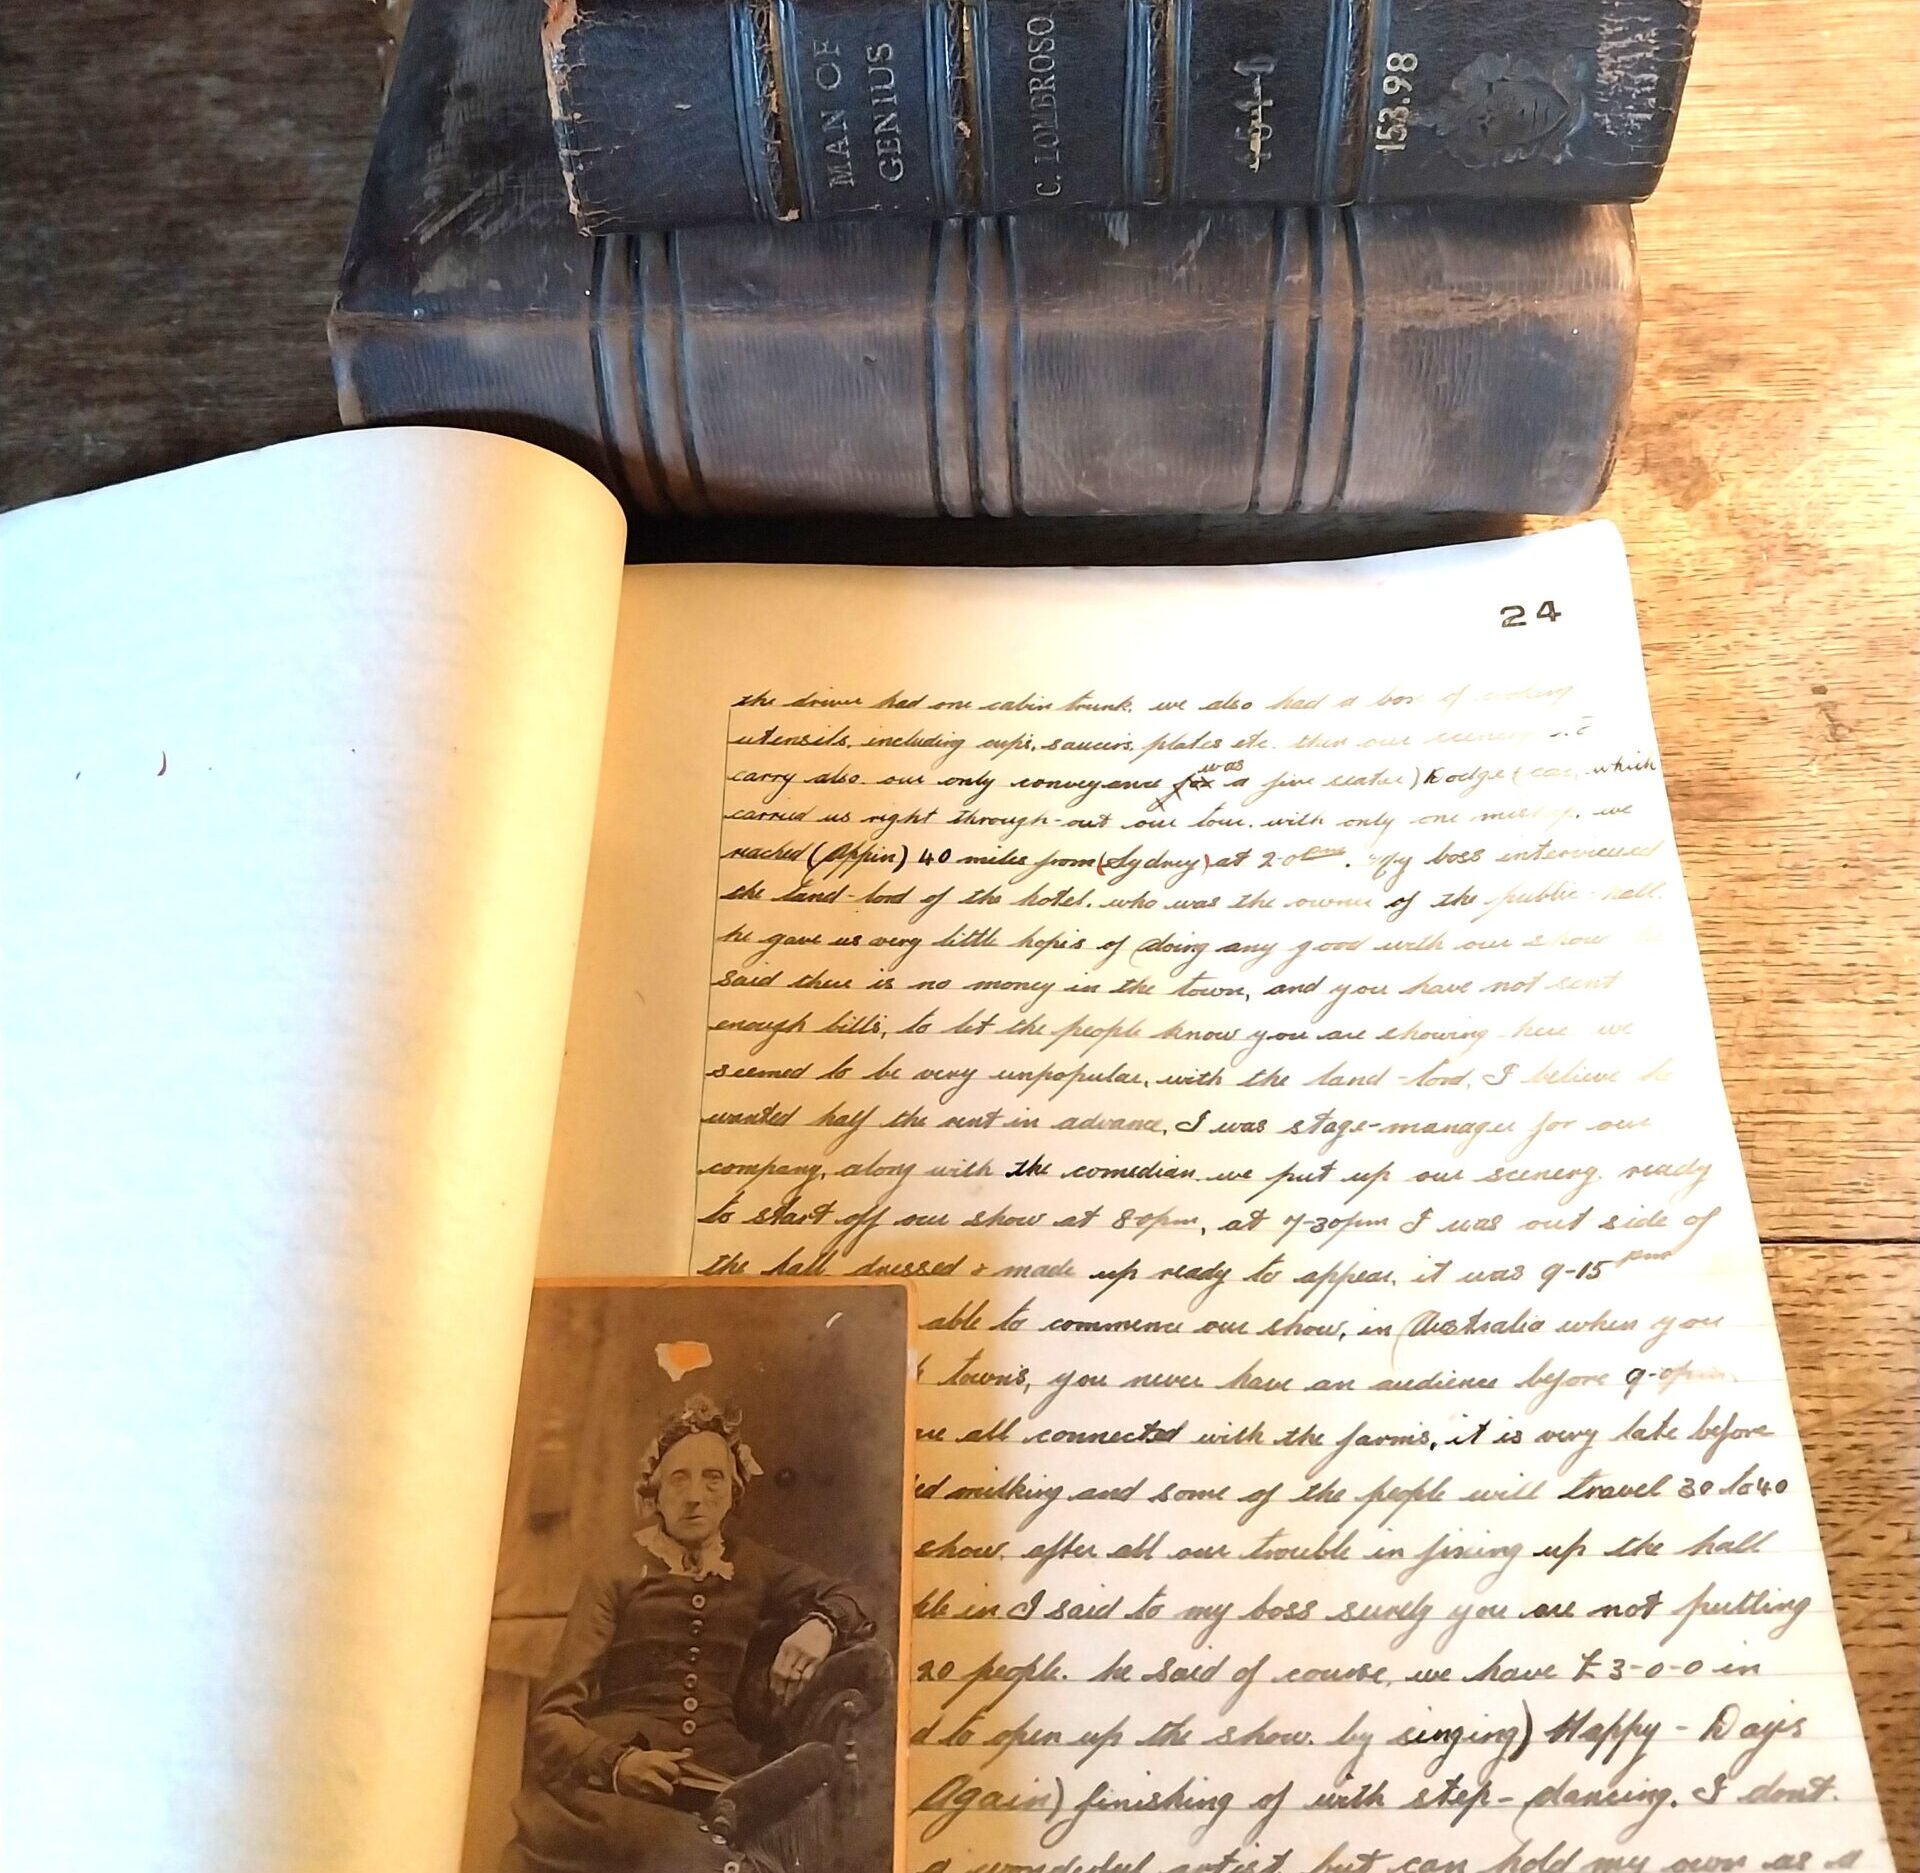 MAN OF
GENIUS
C. LOMBROSO
153.98
24
the driver had one cabin trunk. we also had a box of cooking
utensils, including cups, saucers, plates etc. then our scenery to
carry also. our only conveyance was a five seater) Dodge (car, which
carried us right through-out our tour. with only one mishap. we
reached (Appin) 40 miles from (Sydney) at 2-0pm. My boss interviewed
the land-lord of the hotel. who was the owner of the public-hall.
he gave us very little hopes of doing any good with our show he
said there is no money in the town, and you have not sent
enough bills, to let the people know you are showing here we
seemed to be very unpopular, with the land-lord, I believe he
wanted half the rent in advance, I was stage-manager for our
company, along with the comedian. we put up our scenery. ready
to start off our show at 8-0pm, at 7-30pm I was out side of
the hall dressed & made up ready to appear, it was 9-15 pm
able to commence our show, in Australia when you
towns, you never have an audience before 9-0pm.
are all connected with the farms, it is very late before
milking and some of the people will travel 30 to 40
show. after all our trouble in fixing up the hall
in I said to my boss surely you are not putting
20 people. he said of course, we have £3-0-0 in
to open up the show. by singing) Happy-Days
Again) finishing of with step-dancing. I dont.
a wonderful artist, but can hold my own as a